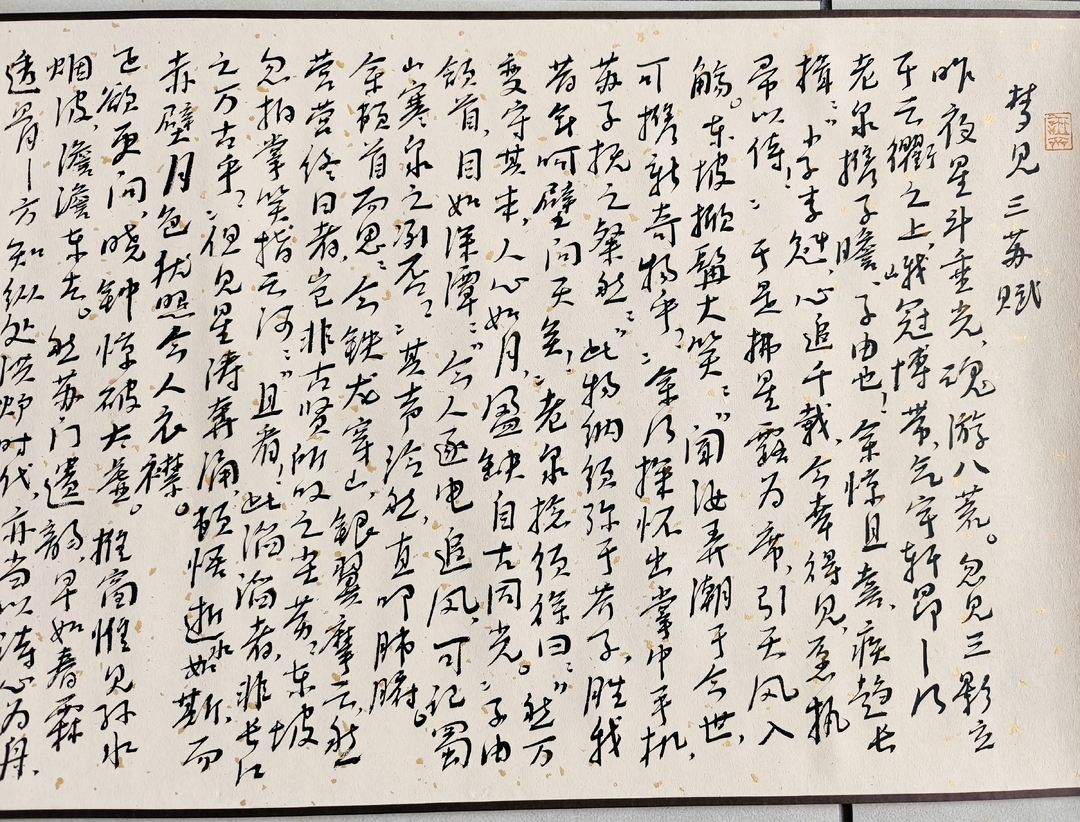 梦见三苏赋
昨夜星斗垂光，魂游八荒。忽见三影立
于云衢之上，峨冠博带，气宇轩昂——乃
老泉携子瞻、子由也！余惊且喜，疾趋长
揖：“小子李，心追千载，今幸得见，愿执
帚以侍！”于是拂星霞为席，引天风入
觞。东坡掀髯大笑：“闻汝弄潮于今世，
可携新奇物乎？”余乃探怀出掌中手机，
苏子抚之粲然：“此物纳须弥于芥子，胜我
昔年呵壁问天矣！”老泉捻须徐曰：“然万
变守其本，人心如月，盈缺自古同光。”子由
颔首，目如深潭：“今人逐电追风，可记蜀
山寒泉之冽否？”其声泠然，直叩肺腑。
余顿首而思：今铁龙穿山，银翼摩云，然
营营终日者，岂非古贤所叹之尘劳？东坡
忽拍掌笑指云河：“且看！此滔滔者，非长江
之万古乎？”但见星涛奔涌，顿悟逝水如斯，而
赤壁月色犹照今人衣襟。
正欲更问，晓钟惊破太虚。推窗惟见环水
烟波，澹澹东去。然苏门遗韵，早如春霖
透骨——方知纵处洪炉时代，亦当以诗心为舟，